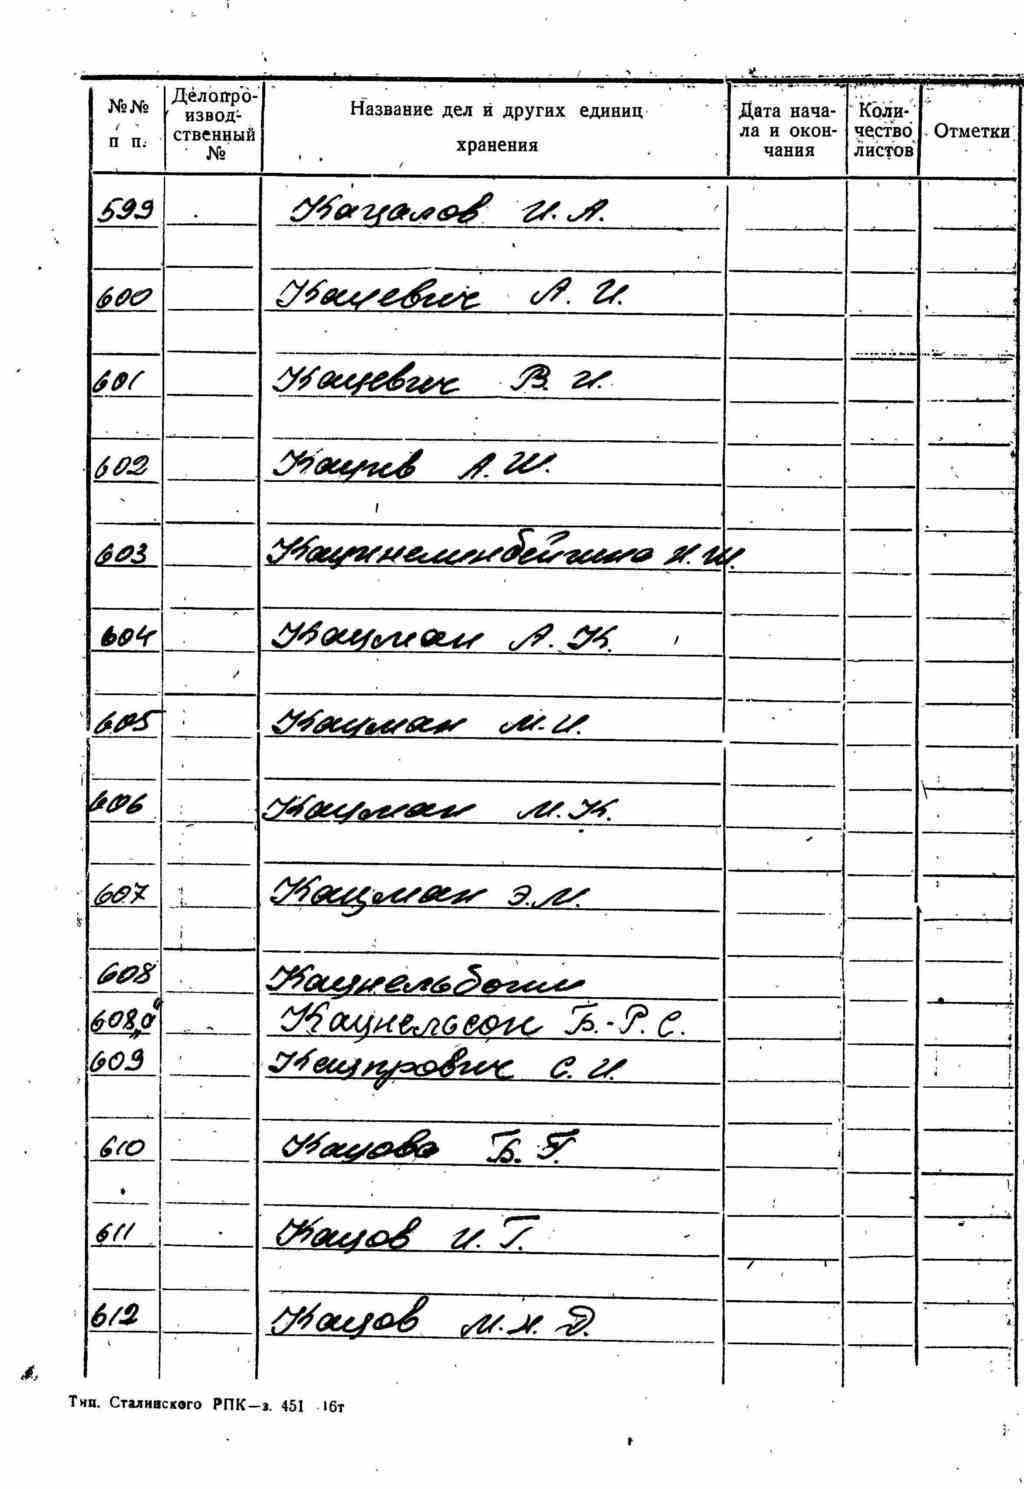 №№ п п.
Делопроизвод- ственный №
Название дел и других единиц хранения
Дата начала и окончания
Количество листов
Отметки
599 Кацалов И. А.
600 Кацевич А. И.
601 Кацевич В. И.
602 Кацев А. Ш.
603 Н. Ш.
604 Кацман А. К.
605 Кацман М. И.
606 Кацман М. К.
607 Кацман Э. М.
608 Кацнельбоген
608„а“ Кацнельсон Б.-Р. С.
609 Кацпрович С. И.
610 Кацова Б. Г.
611 Кацов И. Г.
612 Кацов М. Н. Д.
Тип. Сталинского РПК—з. 451 16т